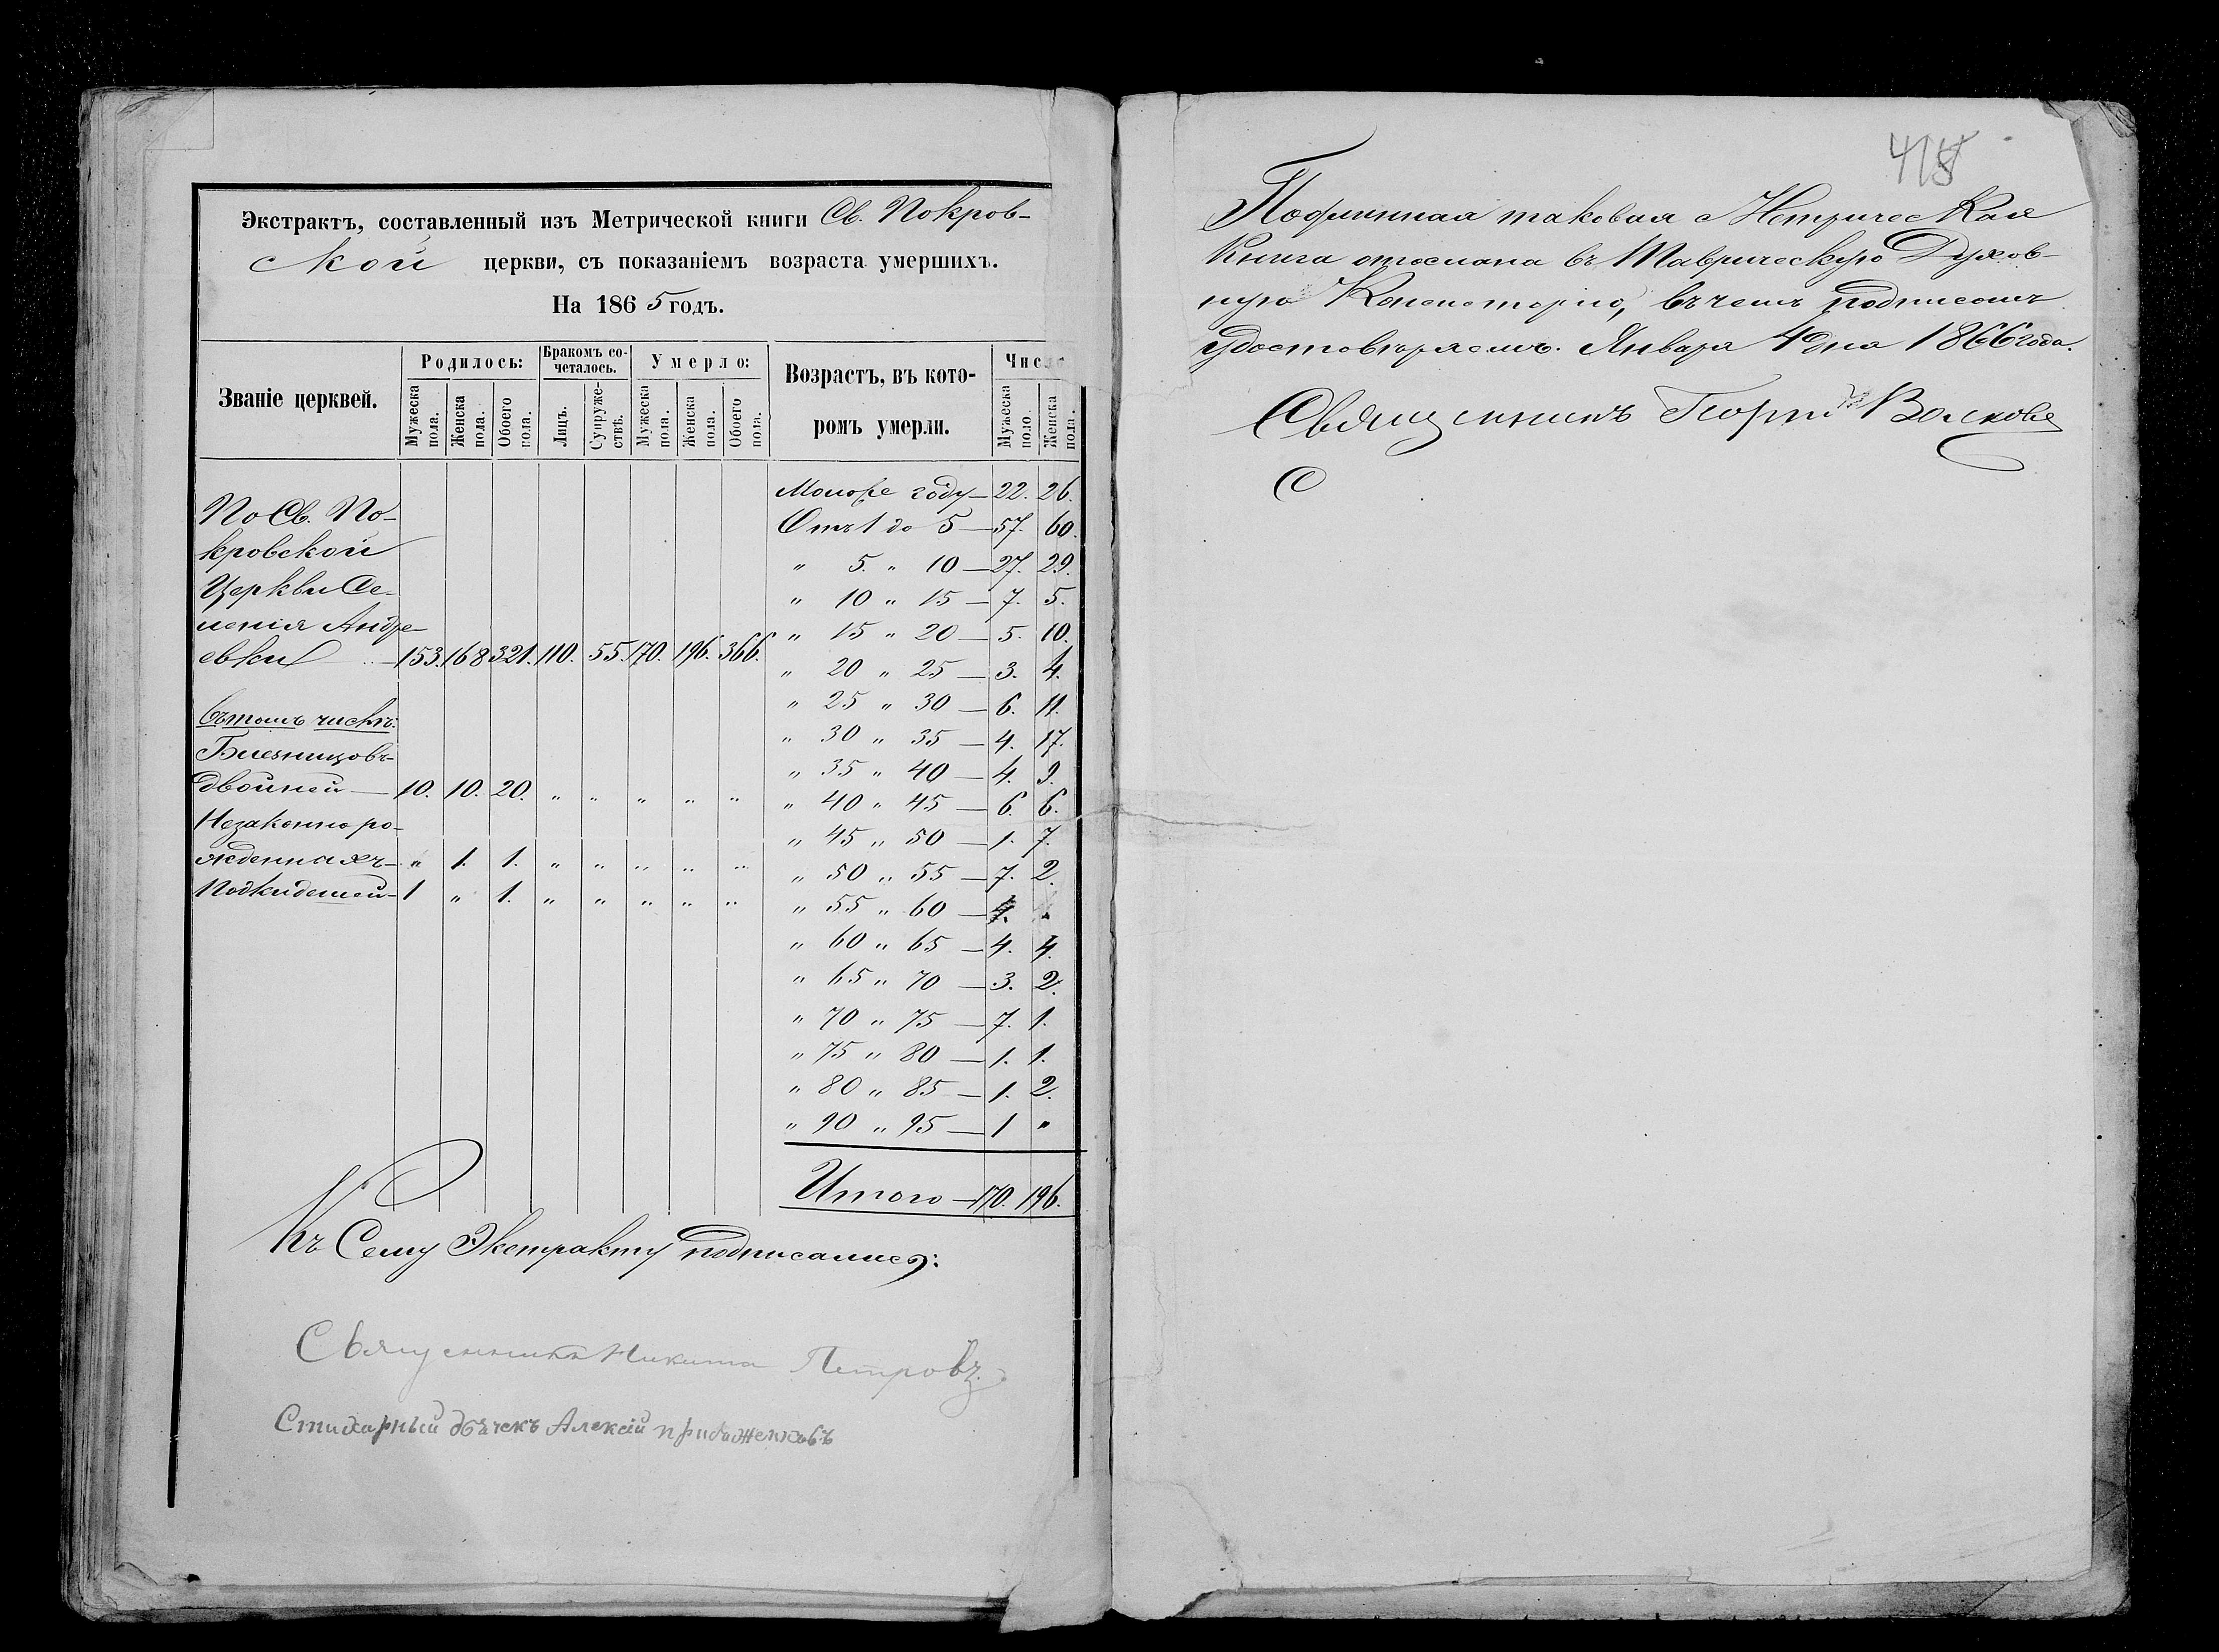 Экстрактъ, составленный изъ Метрической книги Св. Покров-
ской церкви, съ показаніемъ возраста умершихъ.
На 1865 годъ.
Званіе церквей.
Родилось:
Мужеска пола.
Женска пола.
Обоего пола.
Бракомъ со-
четалось.
Лицъ.
Супруже-
ствъ.
Умерло:
Мужеска пола.
Женска пола.
Обоего пола.
Возрастъ, въ кото-
ромъ умерли.
Число
Мужеска поло.
Женска пола.
По Св. По-
кровской
Церкви Се-
ленія Андре-
евки — 153. 168. 321. 110. 55. 170. 196. 366.
Въ томъ числѣ:
Близнецовъ-
двойней — 10. 10. 20. „ „ „ „ „
Незаконноро-
жденныхъ — „ 1. 1. „ „ „ „ „
Подкидышей — 1 „ 1. „ „ „ „ „
Моложе году — 22. 26.
Отъ 1 до 5 — 57. 60.
„ 5. „ 10 — 27. 29.
„ 10 „ 15 — 7. 5.
„ 15 „ 20 — 5. 10.
„ 20 „ 25 — 3. 4.
„ 25 „ 30 — 6. 11.
„ 30 „ 35 — 4. 17.
„ 35 „ 40 — 4. 9.
„ 40 „ 45 — 6. 6.
„ 45 „ 50 — 1. 7.
„ 50 „ 55 — 7. 2.
„ 55 „ 60 — 4.
„ 60 „ 65 — 4. 4.
„ 65 „ 70 — 3. 2.
„ 70 „ 75 — 7. 1.
„ 75 „ 80 — 1. 1.
„ 80 „ 85 — 1. 2.
„ 90 „ 95 — 1 „
Итого — 170. 196.
Къ Сему Экстракту подписались:
Священникъ Никита Петровъ.
Стихарный дьячекъ Алексій
Подлинная таковая Метрическая
Книга отослана въ Таврическую Духов-
ную Консисторію, въ чемъ подписомъ
удостовѣряемъ. Января 4 дня 1866 года.
Священникъ Георгій Волковъ
С